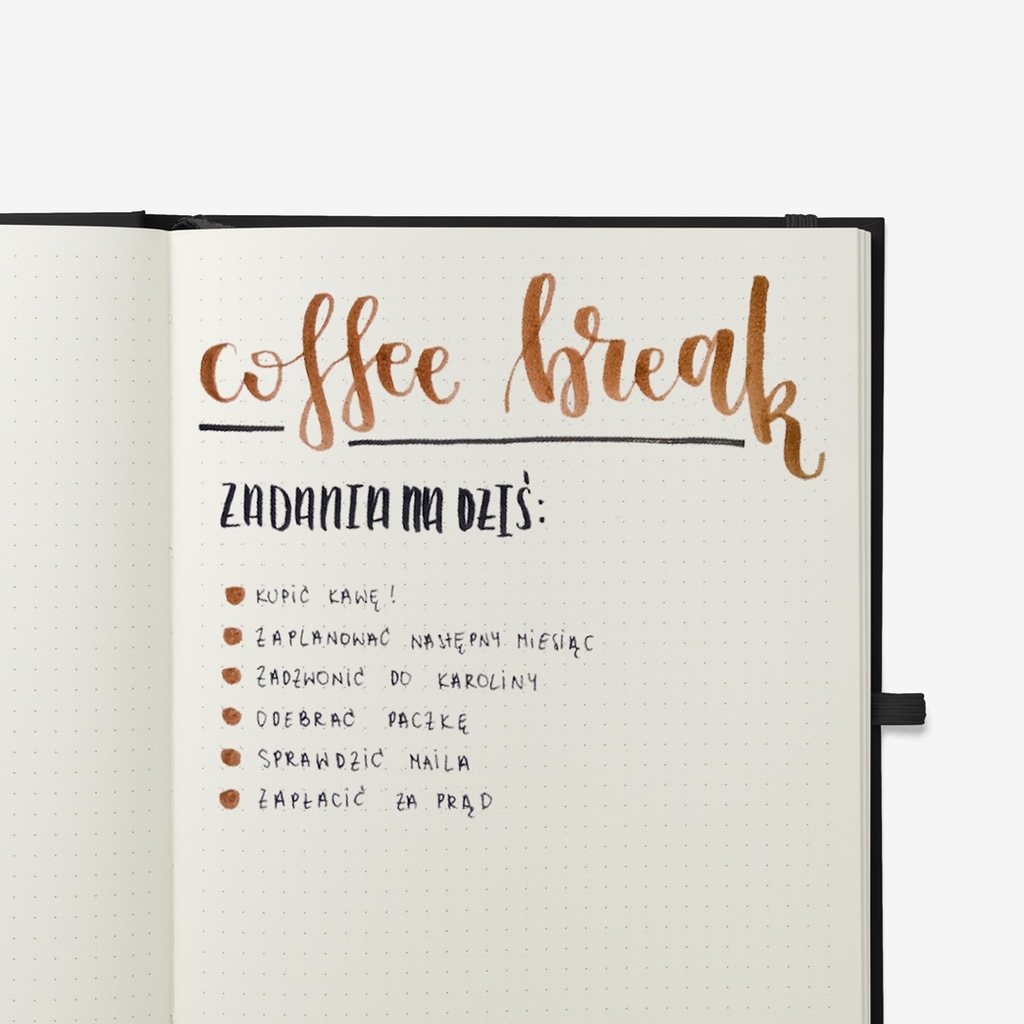 coffee break
ZADANIA NA DZIŚ:
KUPIĆ KAWĘ!
ZAPLANOWAĆ NASTĘPNY MIESIĄC
ZADZWONIĆ DO KAROLINY
ODEBRAĆ PACZKĘ
SPRAWDZIĆ MAILA
ZAPŁACIĆ ZA PRĄD